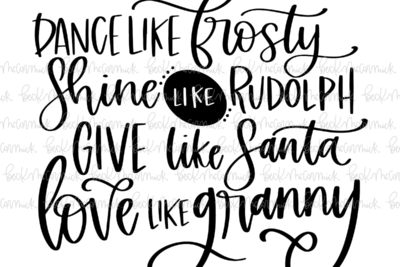 DANCE LIKE frosty
Shine LIKE RUDOLPH
GIVE like Santa
love LIKE granny